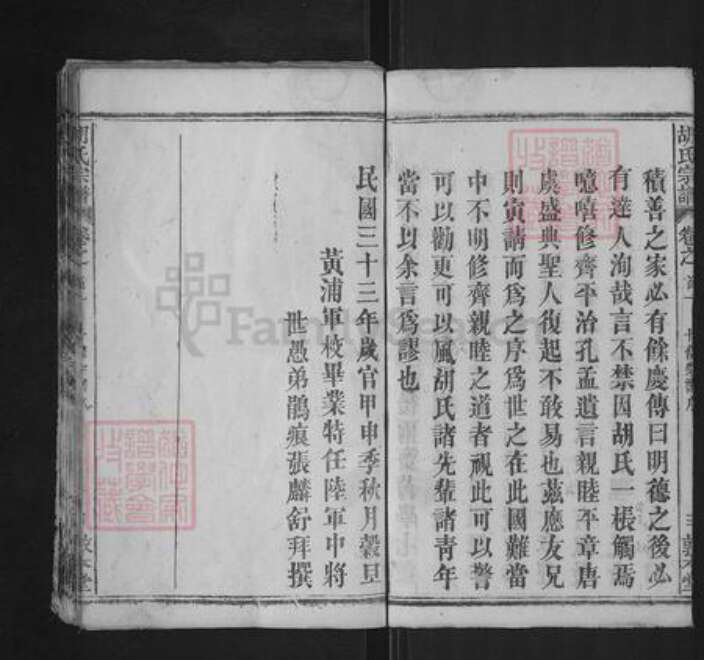 胡氏宗譜
積善之家必有餘慶傳曰明德之後必
有達人洵哉言不禁因胡氏一振觸焉
噫嘻修齊平治孔孟遺言親睦平章唐
虞盛典聖人復起不敢易也茲應友兄
則寅請而為之序為世之在此國難當
中不明修齊親睦之道者視此可以警
可以勸更可以風胡氏諸先輩諸青年
當不以余言為謬也
民國三十三年歲官甲申季秋月穀旦
黃浦軍校畢業特任陸軍中將
世愚弟鵑痕張麟舒拜撰
胡氏宗譜